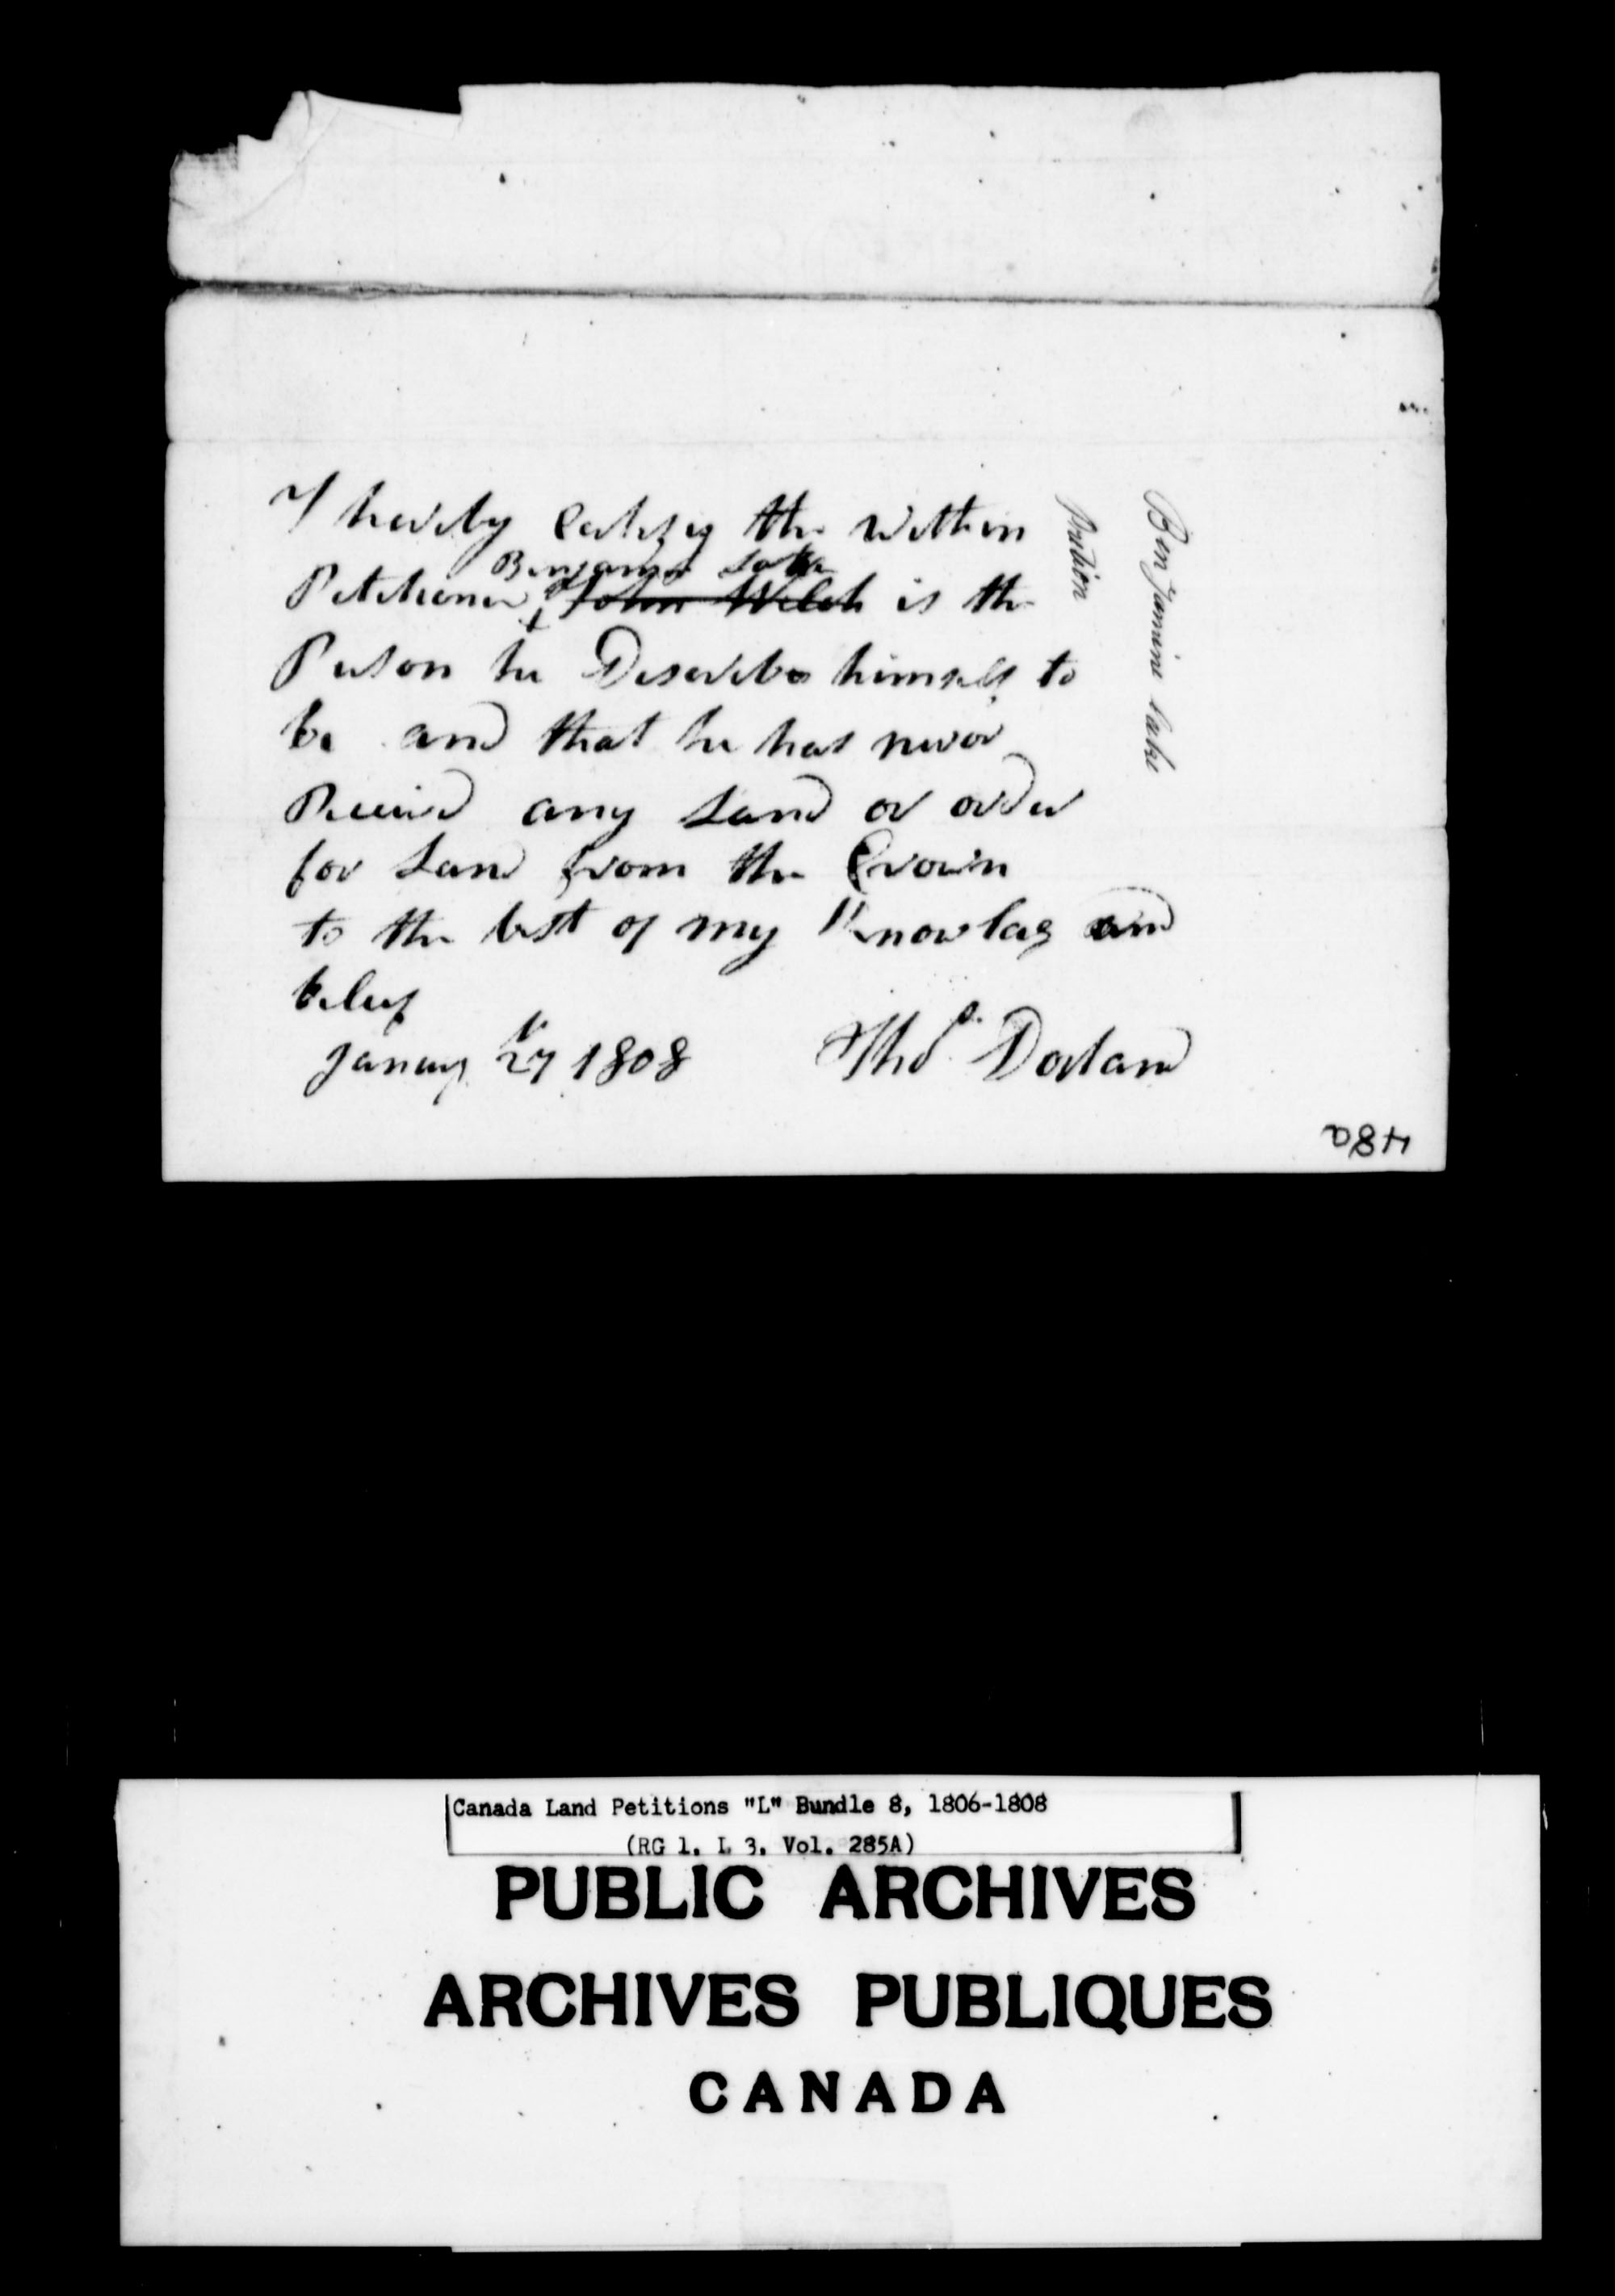 I hereby Certify the within
Benjamin Lake
Petitioner John Welch is the
Person he Describes himself to
be and that he has never
Received any Land or order
for Land from the Crown
to the best of my Knowlag and
beleef
January 27 1808 Thos. Dorland
Petition
Benjamin Lake
48a
Canada Land Petitions "L" Bundle 8, 1806-1808
(RG 1, L 3, Vol. 285A)
PUBLIC ARCHIVES
ARCHIVES PUBLIQUES
CANADA